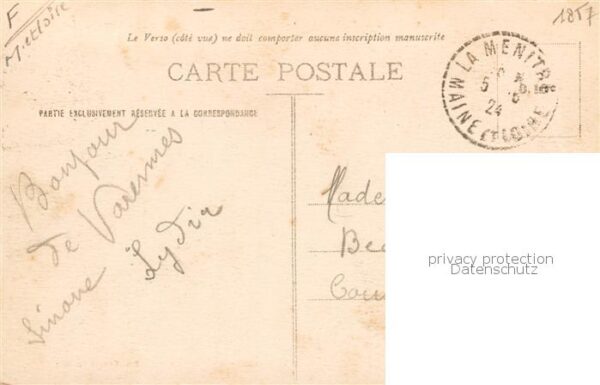 F
M. et Loire
1857
Le Verso (côté vue) ne doit comporter aucune inscription manuscrite
CARTE POSTALE
PARTIE EXCLUSIVEMENT RÉSERVÉE A LA CORRESPONDANCE
LA MENITRE
5
24
MAINE ET LOIRE
Bonjour
de Varennes
Simone Lydia
Made
Bea
Cou
privacy protection
Datenschutz